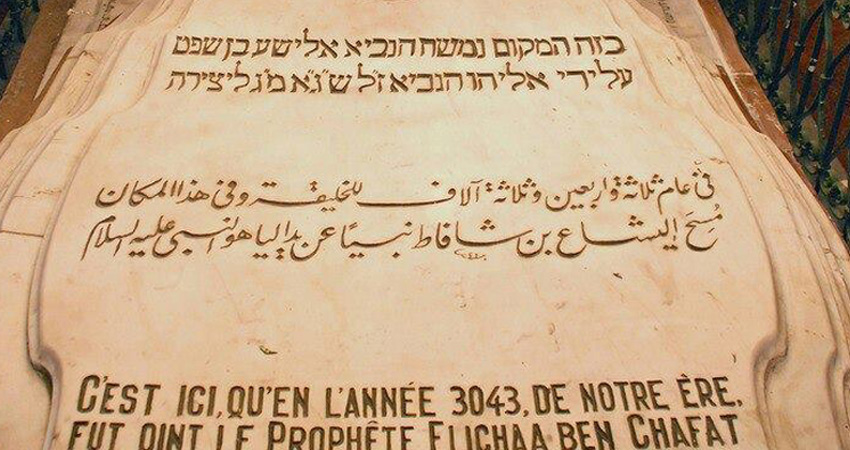 בזה המקום נמשח הנביא אלישע בן שפט
על ידי אליהו הנביא ז״ל ש׳ ג׳ א׳ מ׳ ג׳ ליצירה
في عام ثلاثة واربعين وثلاثة آلاف للخليقة وفي هذا المكان
مُسِحَ إليشاع بن شافاط نبيًا عن يد إلياهو النبي عليه السلام
C'EST ICI, QU'EN L'ANNÉE 3043, DE NOTRE ÈRE,
FUT OINT LE PROPHÊTE ELICHAA BEN CHAFAT